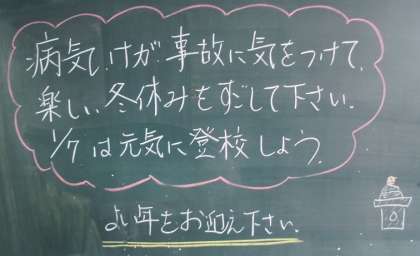 病気、けが、事故に気をつけて、
楽しい冬休みをすごして下さい。
1/7は元気に登校しよう。
よい年をお迎え下さい。